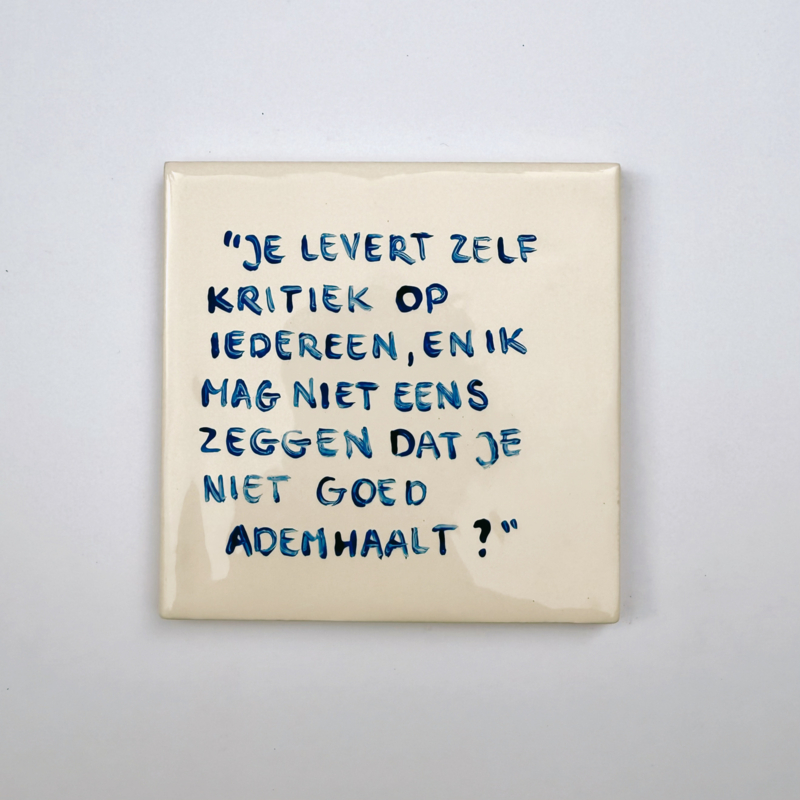 "JE LEVERT ZELF
KRITIEK OP
IEDEREEN, EN IK
MAG NIET EENS
ZEGGEN DAT JE
NIET GOED
ADEMHAALT?"